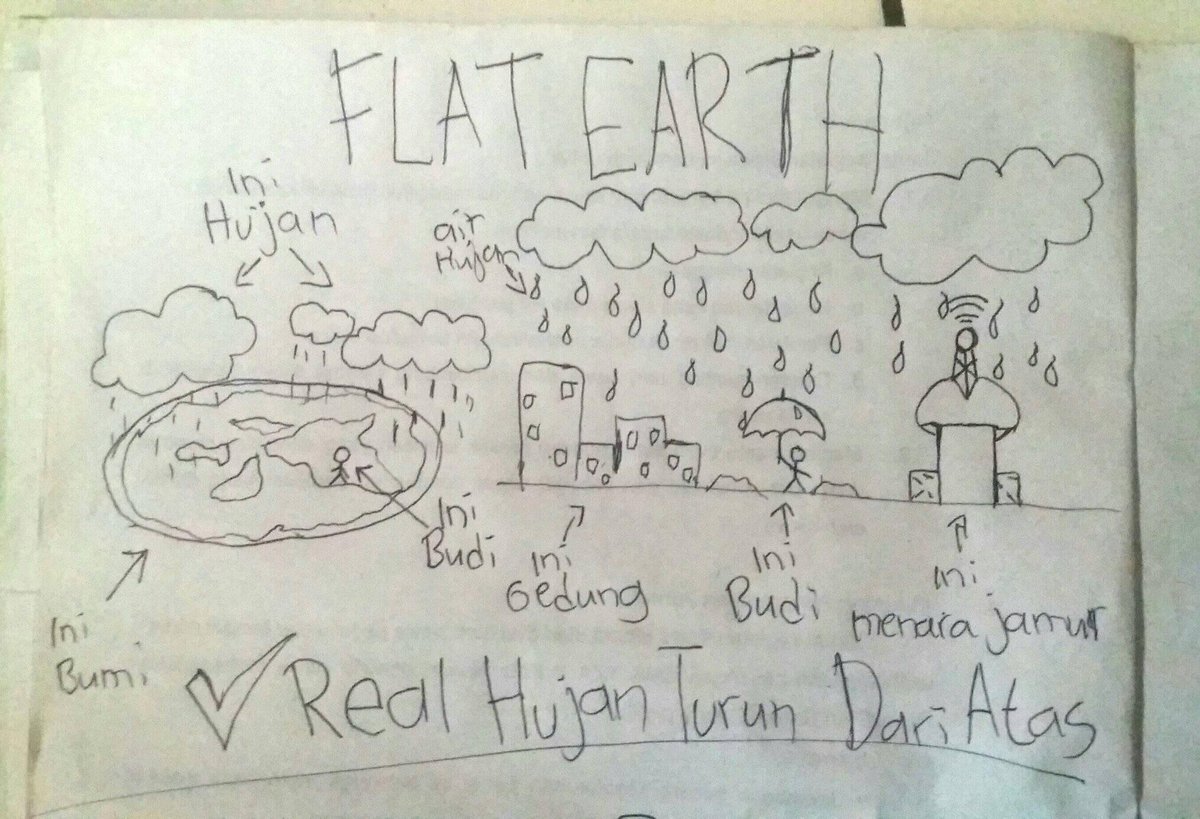 FLAT EARTH
Ini
Hujan
air
Hujan
Ini
Budi
Ini
Gedung
Ini
Budi
ini
menara jamur
Ini
Bumi
Real Hujan Turun Dari Atas